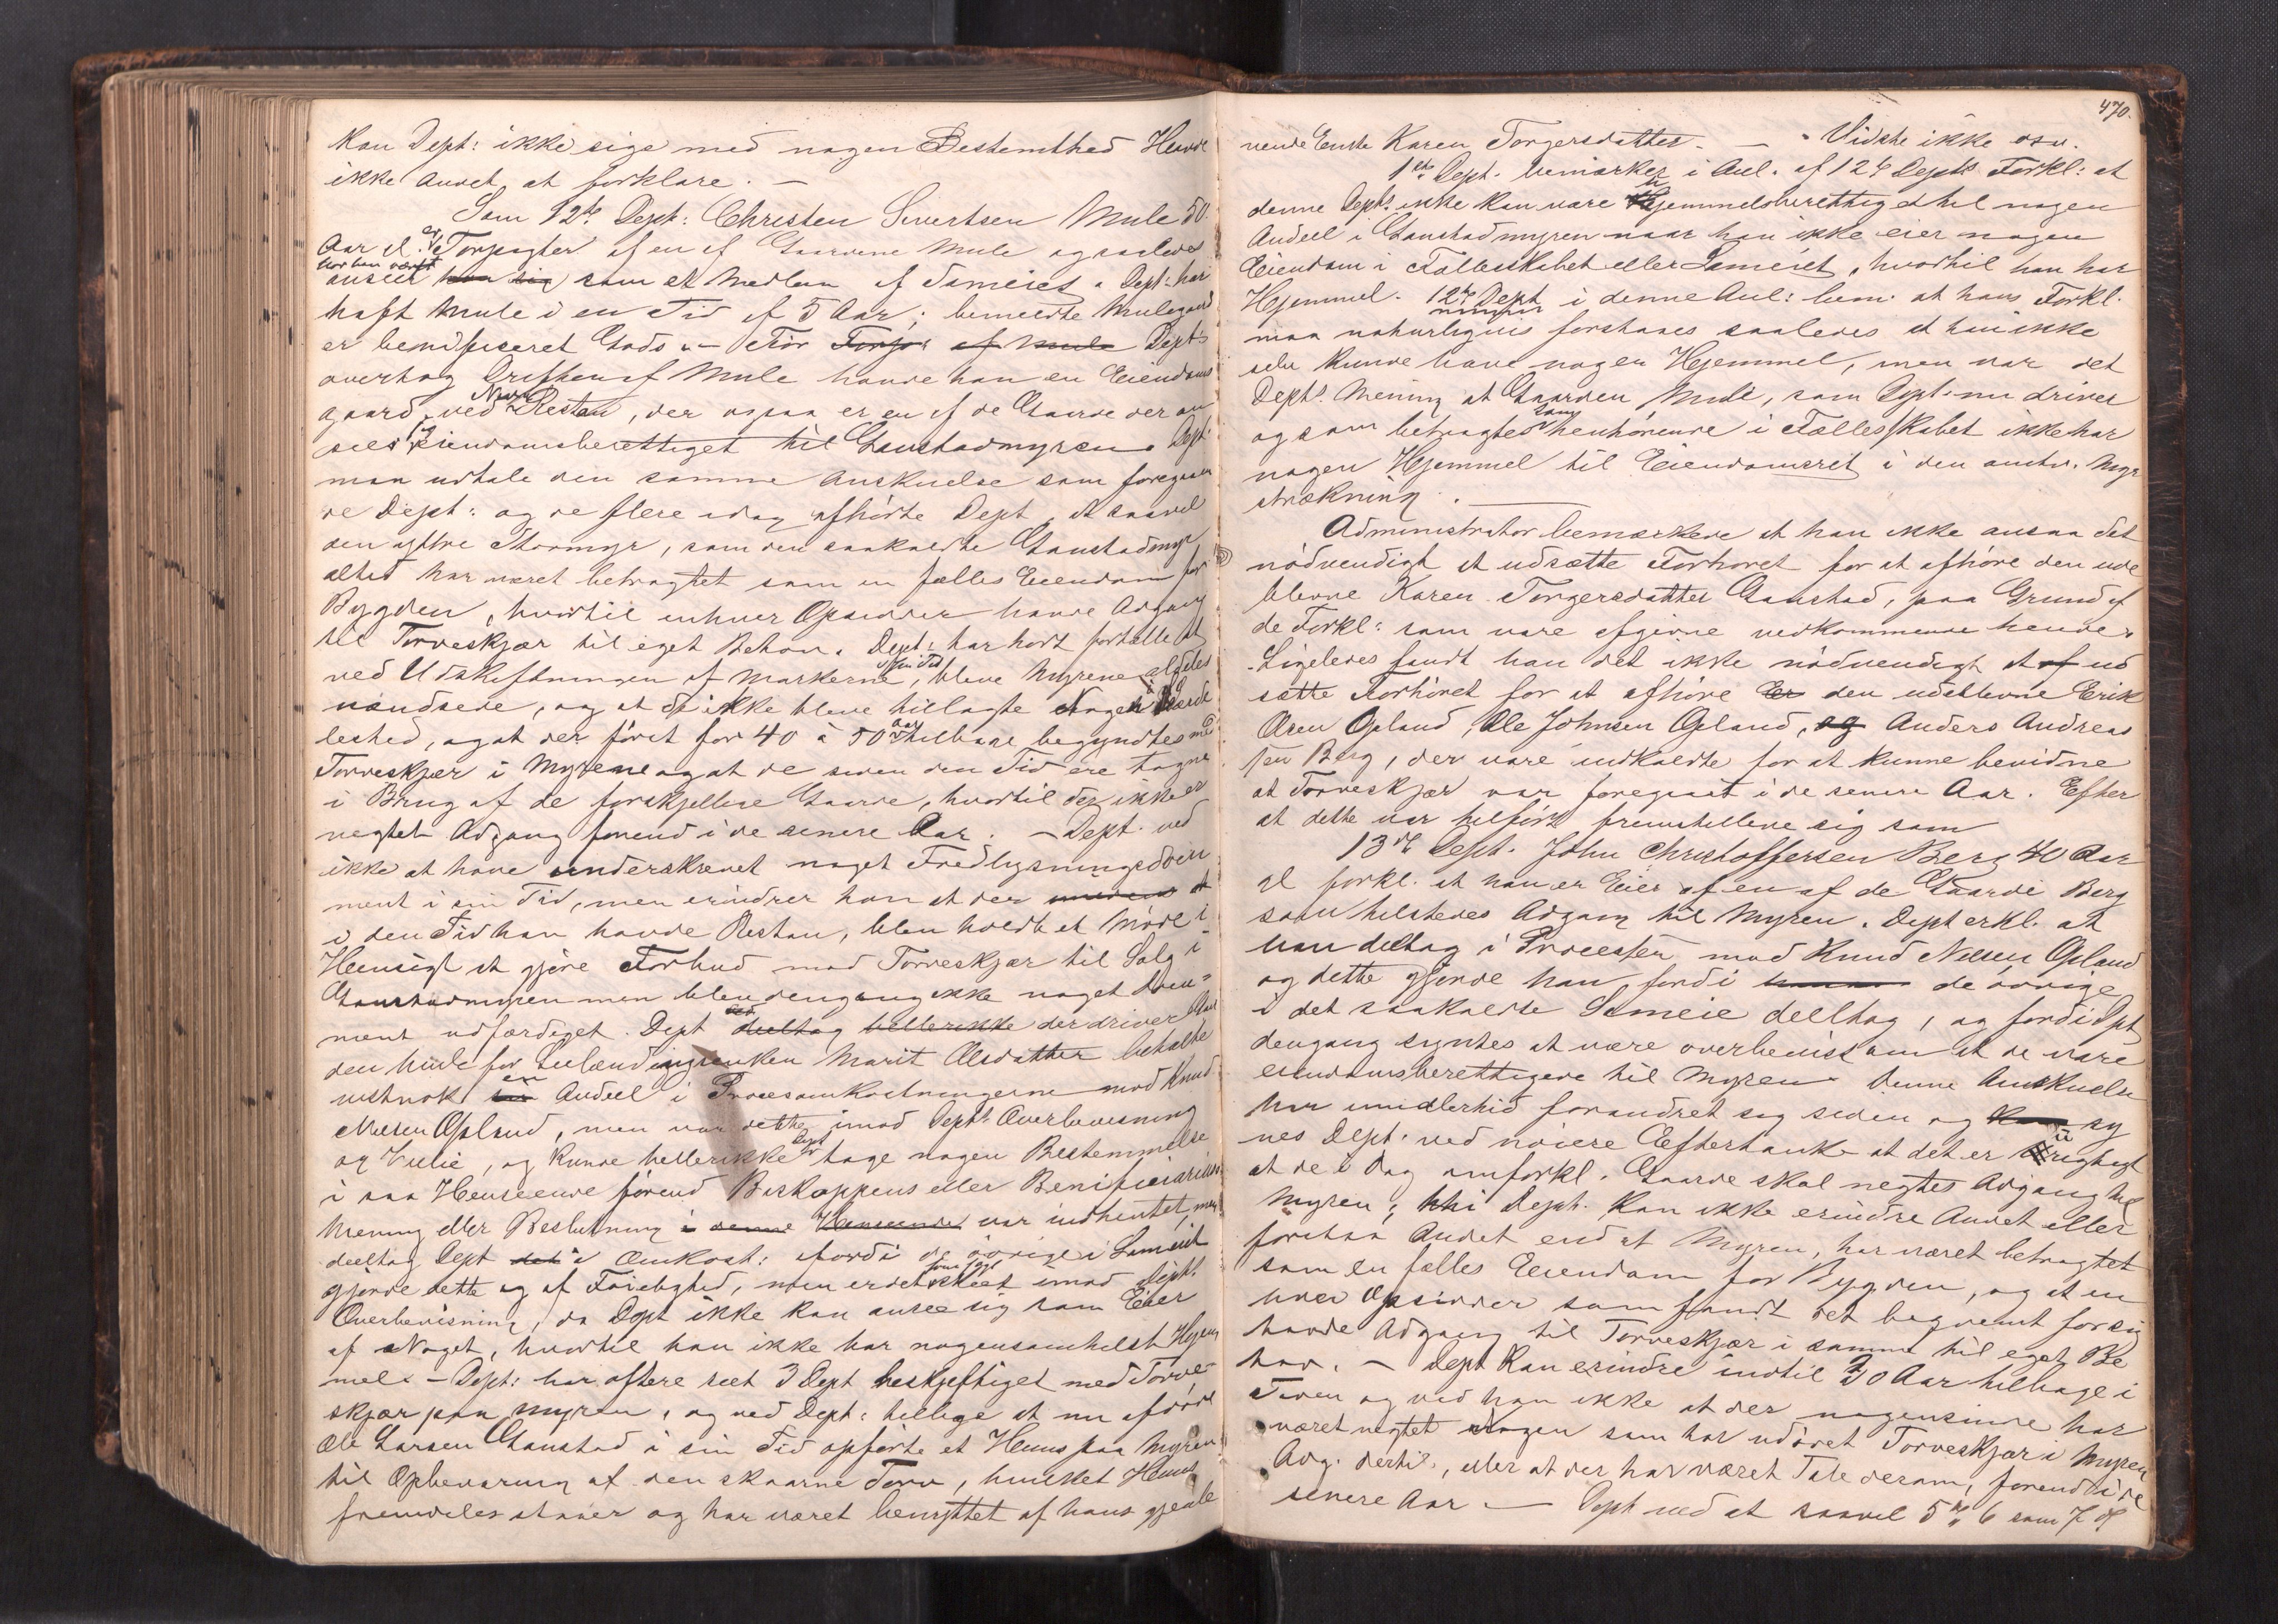 kan Dept: ikke sige med nogen Bestemthed Havde
ikke andet at forklare. —
Som 12te Dept: Christen Sivertsen Mule 50
Aar gl. er Forpagter af en af Gaardene Mule og saaledes
anseer som et Medlem af Sameiet. Dept: har
havt Mule i en Tid af 5 Aar; bemeldte Mulegaard
er benificeret Gods. — Før Forp. af Mule Dept:s
overtog Driften af Mule havde han en Eiendoms
gaard, Nedre Restan, der ogsaa er en af de Gaarde der an
sees eiendomsberettiget til Gaustadmyren. Dept:
maa udtale den samme Anskuelse som foregaaen
de Dept: og de flere idag afhørte Dept, at saavel
den øvre Stormyr, som den saakaldte Gaustadmyr
altid har været betragtet som en fælles Eiendom for
Bygden, hvortil enhver Opsidder havde Adgang
til Torveskjær til eget Behov. Dept: har hørt fortælle at
ved Udskiftningen af Markerne i sin Tid, bleve Myrene alfdeles
uændsede, og at de ikke bleve tillagte Nogen i Særde
leshed, og at der først for 40 à 50 Aar tilbage begyndtes med
Torveskjær i Myrene og at de siden den Tid ere tagne
i Brug af de forskjellige Gaarde, hvortil der ikke er
negtet Adgang førend i de senere Aar. — Dept. ved
ikke at have underskrevet noget Fredlysningsdocu
ment i sin Tid, men erindrer han at der
i den Tid han havde Restan, blev holdt et Møde i
Hensigt at gjøre Forbud mod Torveskjær til Salg i
Gaustadmyren men blev dengang ikke noget Docu=
ment udfærdiget. Dept deeltog hellerikke der driver Gaar
den Mule for Leilændingsenken Marit Olsdatter betalte
vistnok en Andeel i Procesomkostningerne mod Knud
Nilsen Opland, men var dette imod Dept:s Overbeviisning
og Villie, og kunde hellerikke Dept tage nogen Bestemmelse
i saa Henseende førend Biskoppens eller Benificiarius
Mening eller Beslutning i denne Henseende var indhentet, men
deeltog Dept i Omkost: fordi de øvrige i Sameiet
gjorde dette og af Føielighed, men er det som sagt skeet imod Dept:
Overbeviisning, da Dept ikke kan ansee sig som Eier
af Noget, hvortil han ikke har nogensomhelst Hjem
mel. — Dept: har oftere seet 3 Dept beskjeftiget med Torve
skjær paa Myren, og ved Dept: tillige at nu afdøde
Ole Larsen Gaustad i sin Tid opførte et Huus paa Myren
til Opbevaring af den skaarne Torv, hvilket Huus
fremdeles staaer og har været benyttet af hans gjenle
470.
vende Enke Karen Torgersdatter. — Vidste ikke osv.
1ste Dept. bemærker i Anl. af 12te Depts Forkl: at
denne Dept. ikke kan være hjemmelsberettiget til nogen
Andeel i Gaustadmyren naar han ikke eier nogen
Eiendom i Fællesskabet eller Sameiet, hvortil han har
Hjemmel. 12te Dept i denne Anl: bem. at hans Forkl.
maa naturligviis forstaaes saaledes at han ikke
selv kunde have nogen Hjemmel, men var det
Depts Mening at Gaarden Mule, som Dept. nu driver
og som betragtes som henhørende i Fællesskabet ikke har
nogen Hjemmel til Eiendomsret i den omtv. Myr
strækning. —
Administrator bemærkede at han ikke ansaa det
nødvendigt at udsætte Forhøret for at afhøre den ude
blevne Karen Torgersdatter Gaustad, paa Grund af
de Forkl: som vare afgivne vedkommende hende.
Ligeledes fandt han det ikke nødvendigt at af ud
sætte Forhøret for at afhøre En den udeblevne Erik
Olsen Opland, Ole Johnsen Opland, og Anders Andreas
sen Berg, der vare indkaldte for at kunne bevidne
at Torveskjær var foregaaet i de senere Aar. Efter
at dette var tilført fremstillede sig som
13de Dept. John Christoffersen Berg 40 Aar
gl forkl. at han er Eier af en af de Gaarde Berg
som tilstedes Adgang til Myren. Dept erkl. at
han deltog i Processen mod Knud Nilsen Opland
og dette gjorde han, fordi de øvrige
i det saakaldte Sameie deeltog, og fordi Dept
dengang syntes at være overbeviist om at de vare
eiendomsberettigede til Myren. Denne Anskuelse
har imidlertid forandret sig siden og sy
nes Dept. ved nøiere Eftertanke at det er urigtigt
at de i Dag omforkl. Gaarde skal negtes Adgang til
Myren, thi Dept. kan ikke erindre Andet eller
forstaa Andet end at Myren, har været betragtet
som en fælles Eiendom for Bygden, og at en
hver Opsidder som fandt det beqvemt for sig
havde Adgang til Torveskjær i samme til eget Be
hov. — Dept kan erindre indtil 30 Aar tilbage i
Tiden og ved han ikke at der nogensinde har
været negtet Nogen som har udøvet Torveskjær i Myren
Adg. dertil, eller at der har været Tale derom, førend i de
senere Aar. — Dept ved at saavel 5te, 6 som 7de